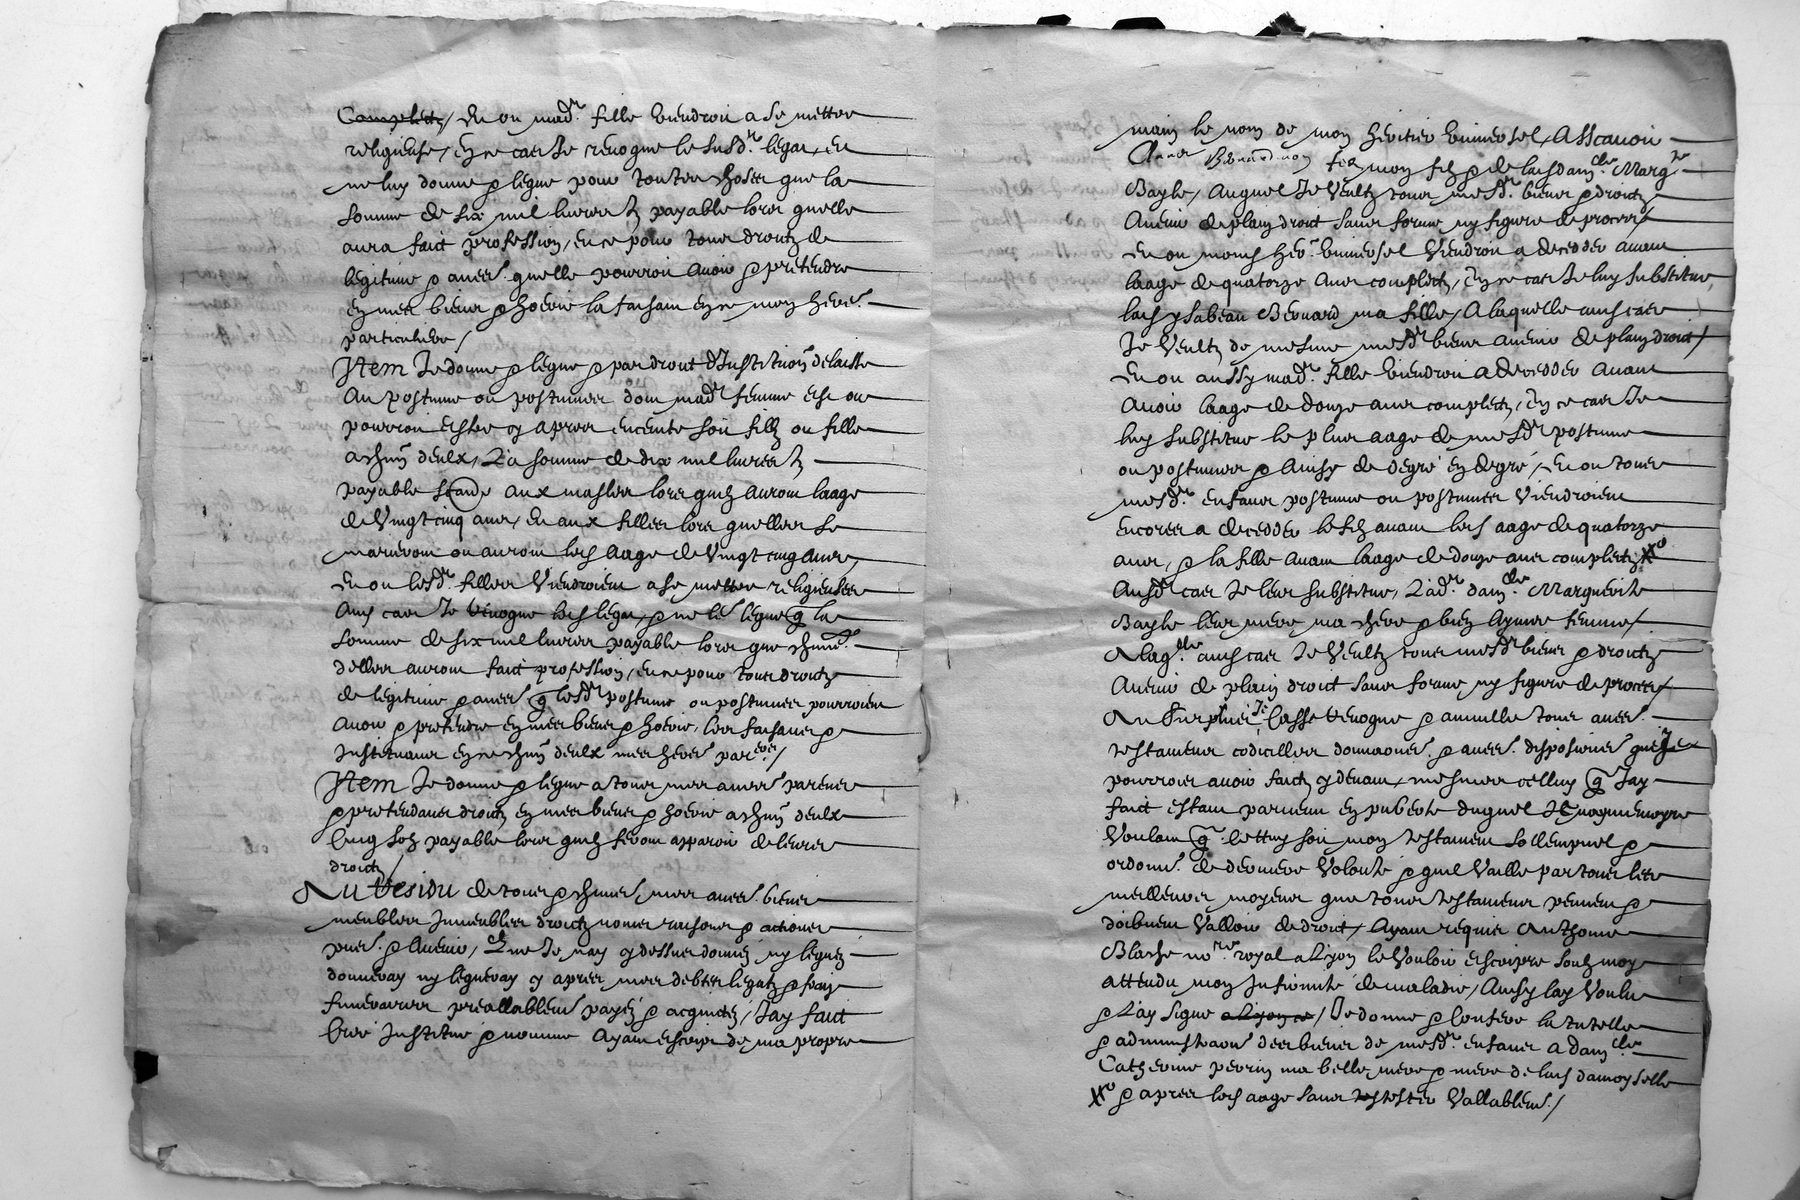 Complectz / Et ou mad.^te fille viendroit a se mettre
religieuse, en ce cas Je revoque le susd.^t legat, et
ne luy donne & legue pour toutes choses que la
somme de six mil livres tz payable lors quelle
aura faict profession, en ce pour tous droictz de
legitime & autres quelle pourroit avoir & pretendre
en mes biens & hoerie la faisant en ce mon here.^e
particuliere /
Item Je donne & legue & par droict d'Institution delaisse
Au postume ou postumes dont mad.^te femme est ou
pourroit estre cy apres enceinte soit filz ou fille
a chun deulx, La somme de dix mil livres tz
payable aux masles lors quilz auront laage
de vingt cinq ans, Et aux filles lors quelles se
marieront ou auront led. aage de vingt cinq ans,
Et ou lesd.^tes filles viendroient a se mettre religieuses
Aud. cas Je revoque led. legat, & ne les legue q la
somme de six mil livres payable lors que chune
delles auront faict profession, en ce pour tous droictz
de legitime & autres q lesd.^tz postume ou postumes pourroient
avoir & pretendre en mes biens & hoerie, les faisant &
Instituant en ce chun deulx mes heres par.^ers /
Item Je donne & legue a tous mes autres parens
& pretendans droictz en mes biens & hoerie a chun deulx
Cinq solz payable lors quilz feront apparoir de leurs
droictz /
Au Residu de tous & chuns mes autres biens
meubles Immeubles droictz noms raisons & actions
pns & Avenir, Que Je nay cy dessus donnez ny leguez
donneray ny legueray cy apres, mes debtes legatz & fraiz
funeraires preallablem.^t payez & acquictez, Jay faict
Cree Institue & nomme Ayant escript de ma propre
main le nom de mon heritier universel, Asscavoir
Bernard mon filz & de lad. dam.^lle Marg.^te
Bayle, Auquel Je veultz tous mesd.^tz biens & droictz
Avenir de plain droict sans forme ny figure de proces /
Et ou mond. her.^e universel viendroit a decedder avant
laage de quatorze ans complectz, En ce cas Je luy substitue
lad. ysabeau Bernard ma fille, A laquelle aud. cas
Je veultz de mesme mesd.^tz biens avenir de plain droict /
Et ou aussy mad.^te fille viendroit a decedder avant
avoir laage de douze ans complectz, En ce cas Je
luy substitue le plus aage de mesd.^tz postume
ou postumes & ainsy de degre en degre, Et ou tous
mesd.^tz enfans postume ou postumes viendroient
encores a decedder le filz avant led. aage de quatorze
ans, & la fille avant laage de douze ans complectz X^o
Ausd.^t cas Je leur substitue, Lad.^te dam.^lle Marguerite
Bayle leur mere ma chere & bien Aymee femme /
A laq.^lle aud. cas Je veultz tous mesd.^tz biens & droictz
Avenir de plain droict sans forme ny figure de proces /
Au surplus Je Casse revoque & annulle tous autres
testamens codicilles donnaons & autres disposicions que Je
pourrois avoir faictz cy devant, mesmes celluy q Jay
faict estant parvenu en puberte duquel
Voulant q cettuy soit mon testament sollempnel &
ordonn.^e de derniere volonte & quil vaille par tous les
meilleures moyens que tous testamens peuvent &
doibvent valloir de droict, Ayant requis Anthoine
Blache no.^re royal a Lyon le vouloir escripre soubz moy
attendu mon Infirmite de maladie, Ainsy lay voulu
& Lay signe a Lyon ce / Je donne & Confere la tutelle
& administraon des biens de mesd.^tz enfans a dam.^lle
Catherine perrin ma belle mere & mere de lad. damoyselle
X^o & apres led. aage sans tester vallablem.^t /